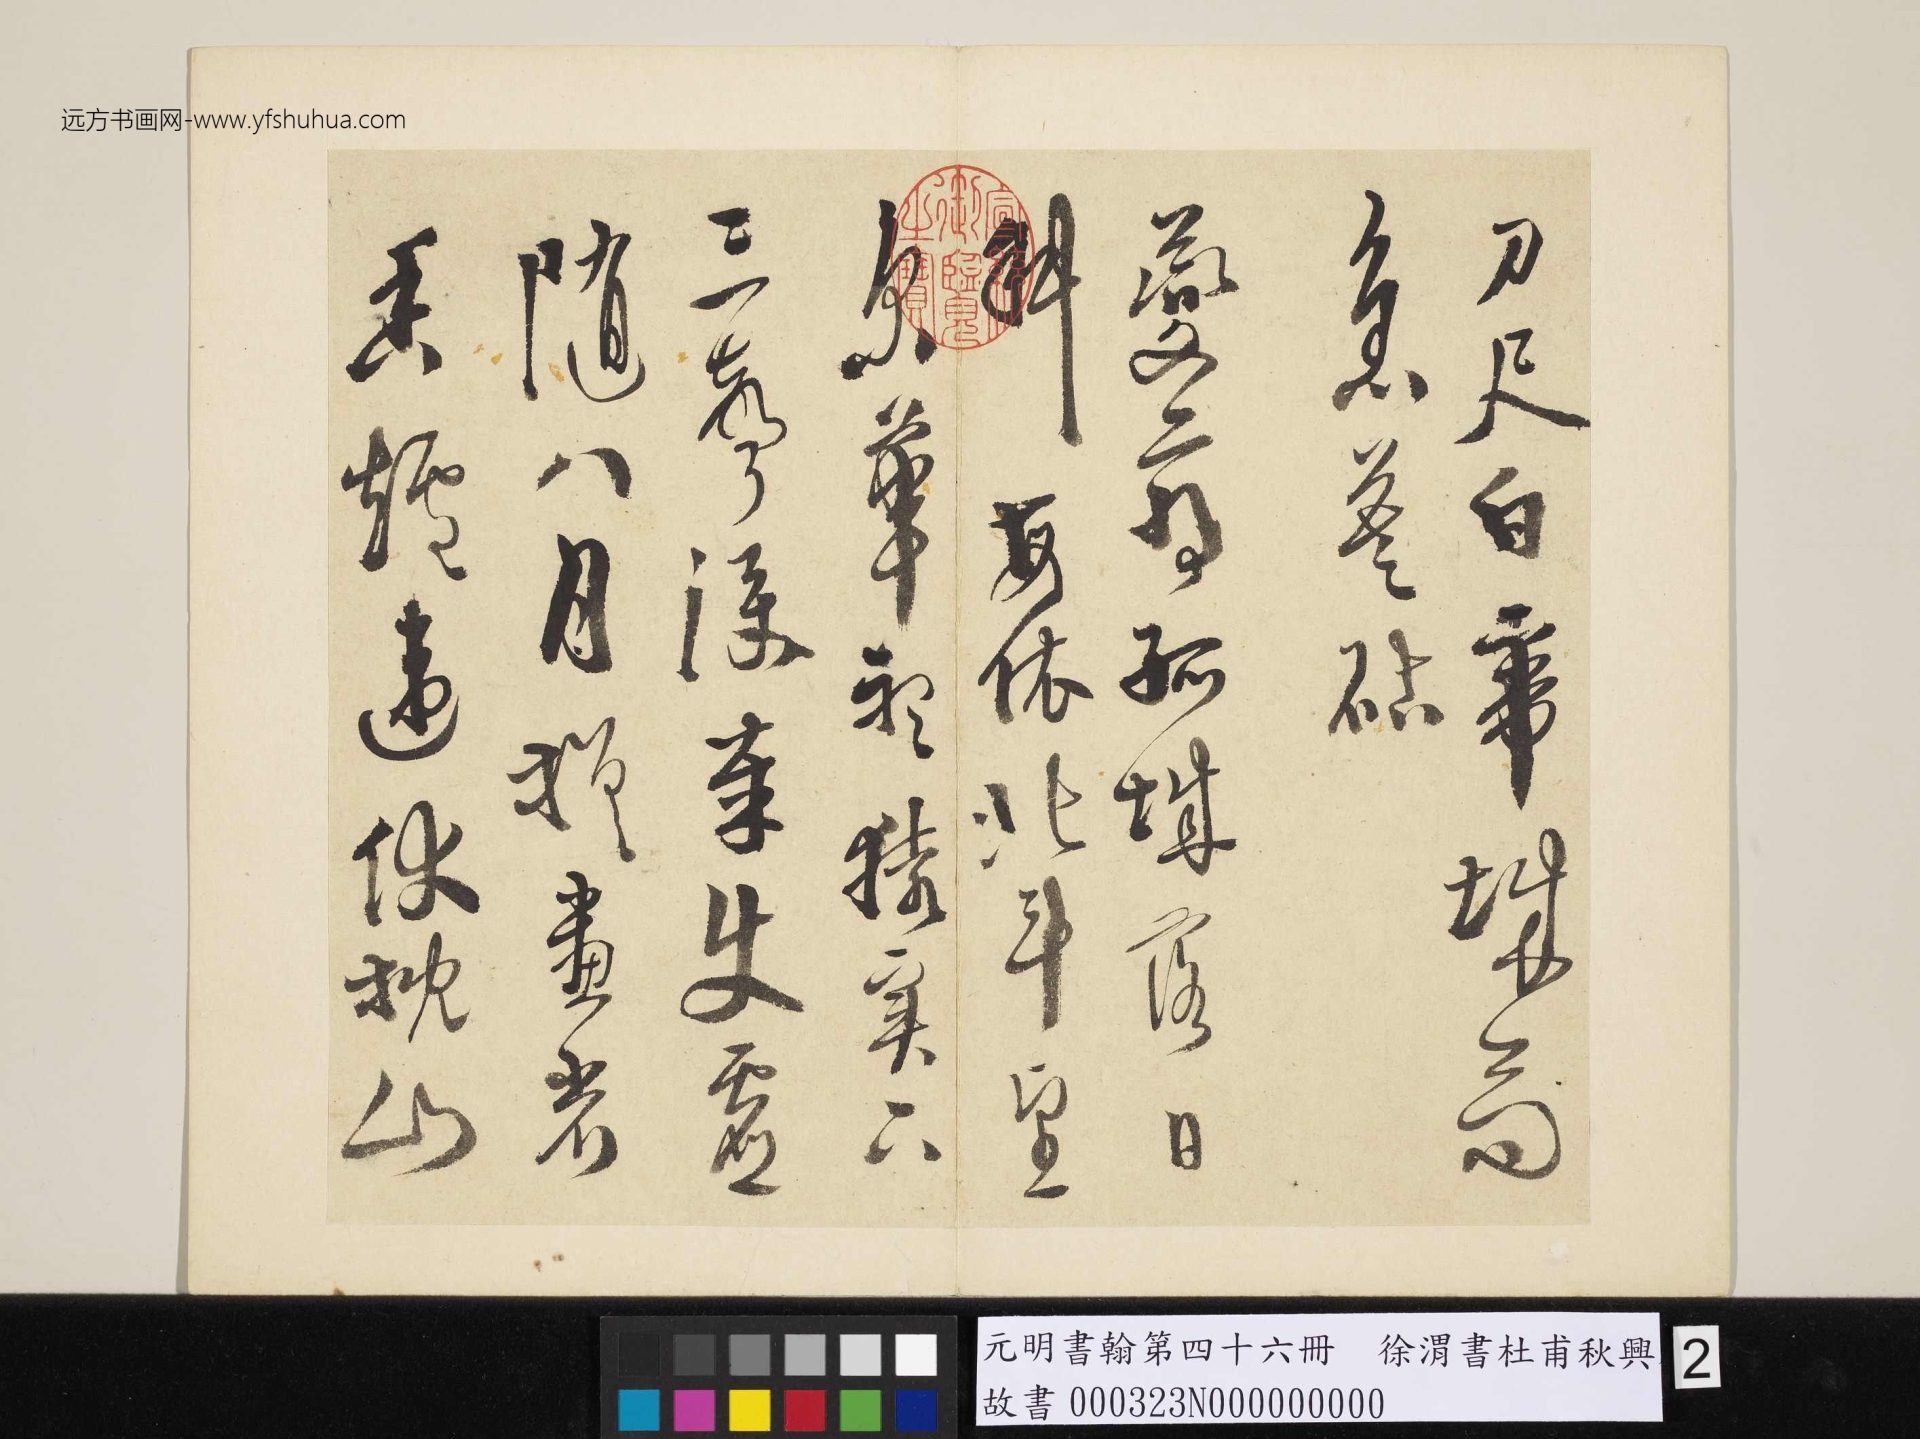 远方书画网-www.yfshuhua.com
刀尺白帝城高
急暮砧
夔府孤城落日
斜每依北斗望
京華聽猿實下
三聲淚奉使虛
隨八月槎畫省
香爐違伏枕山
元明書翰第四十六冊 徐渭書杜甫秋興
故書000323N000000000
2